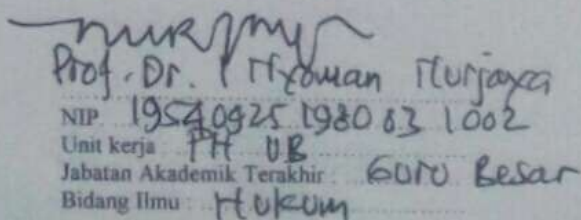 Prof. Dr. I Nyoman Nurjaya
NIP 19540925 198003 1002
Unit kerja FH UB
Jabatan Akademik Terakhir : Guru Besar
Bidang Ilmu : Hukum